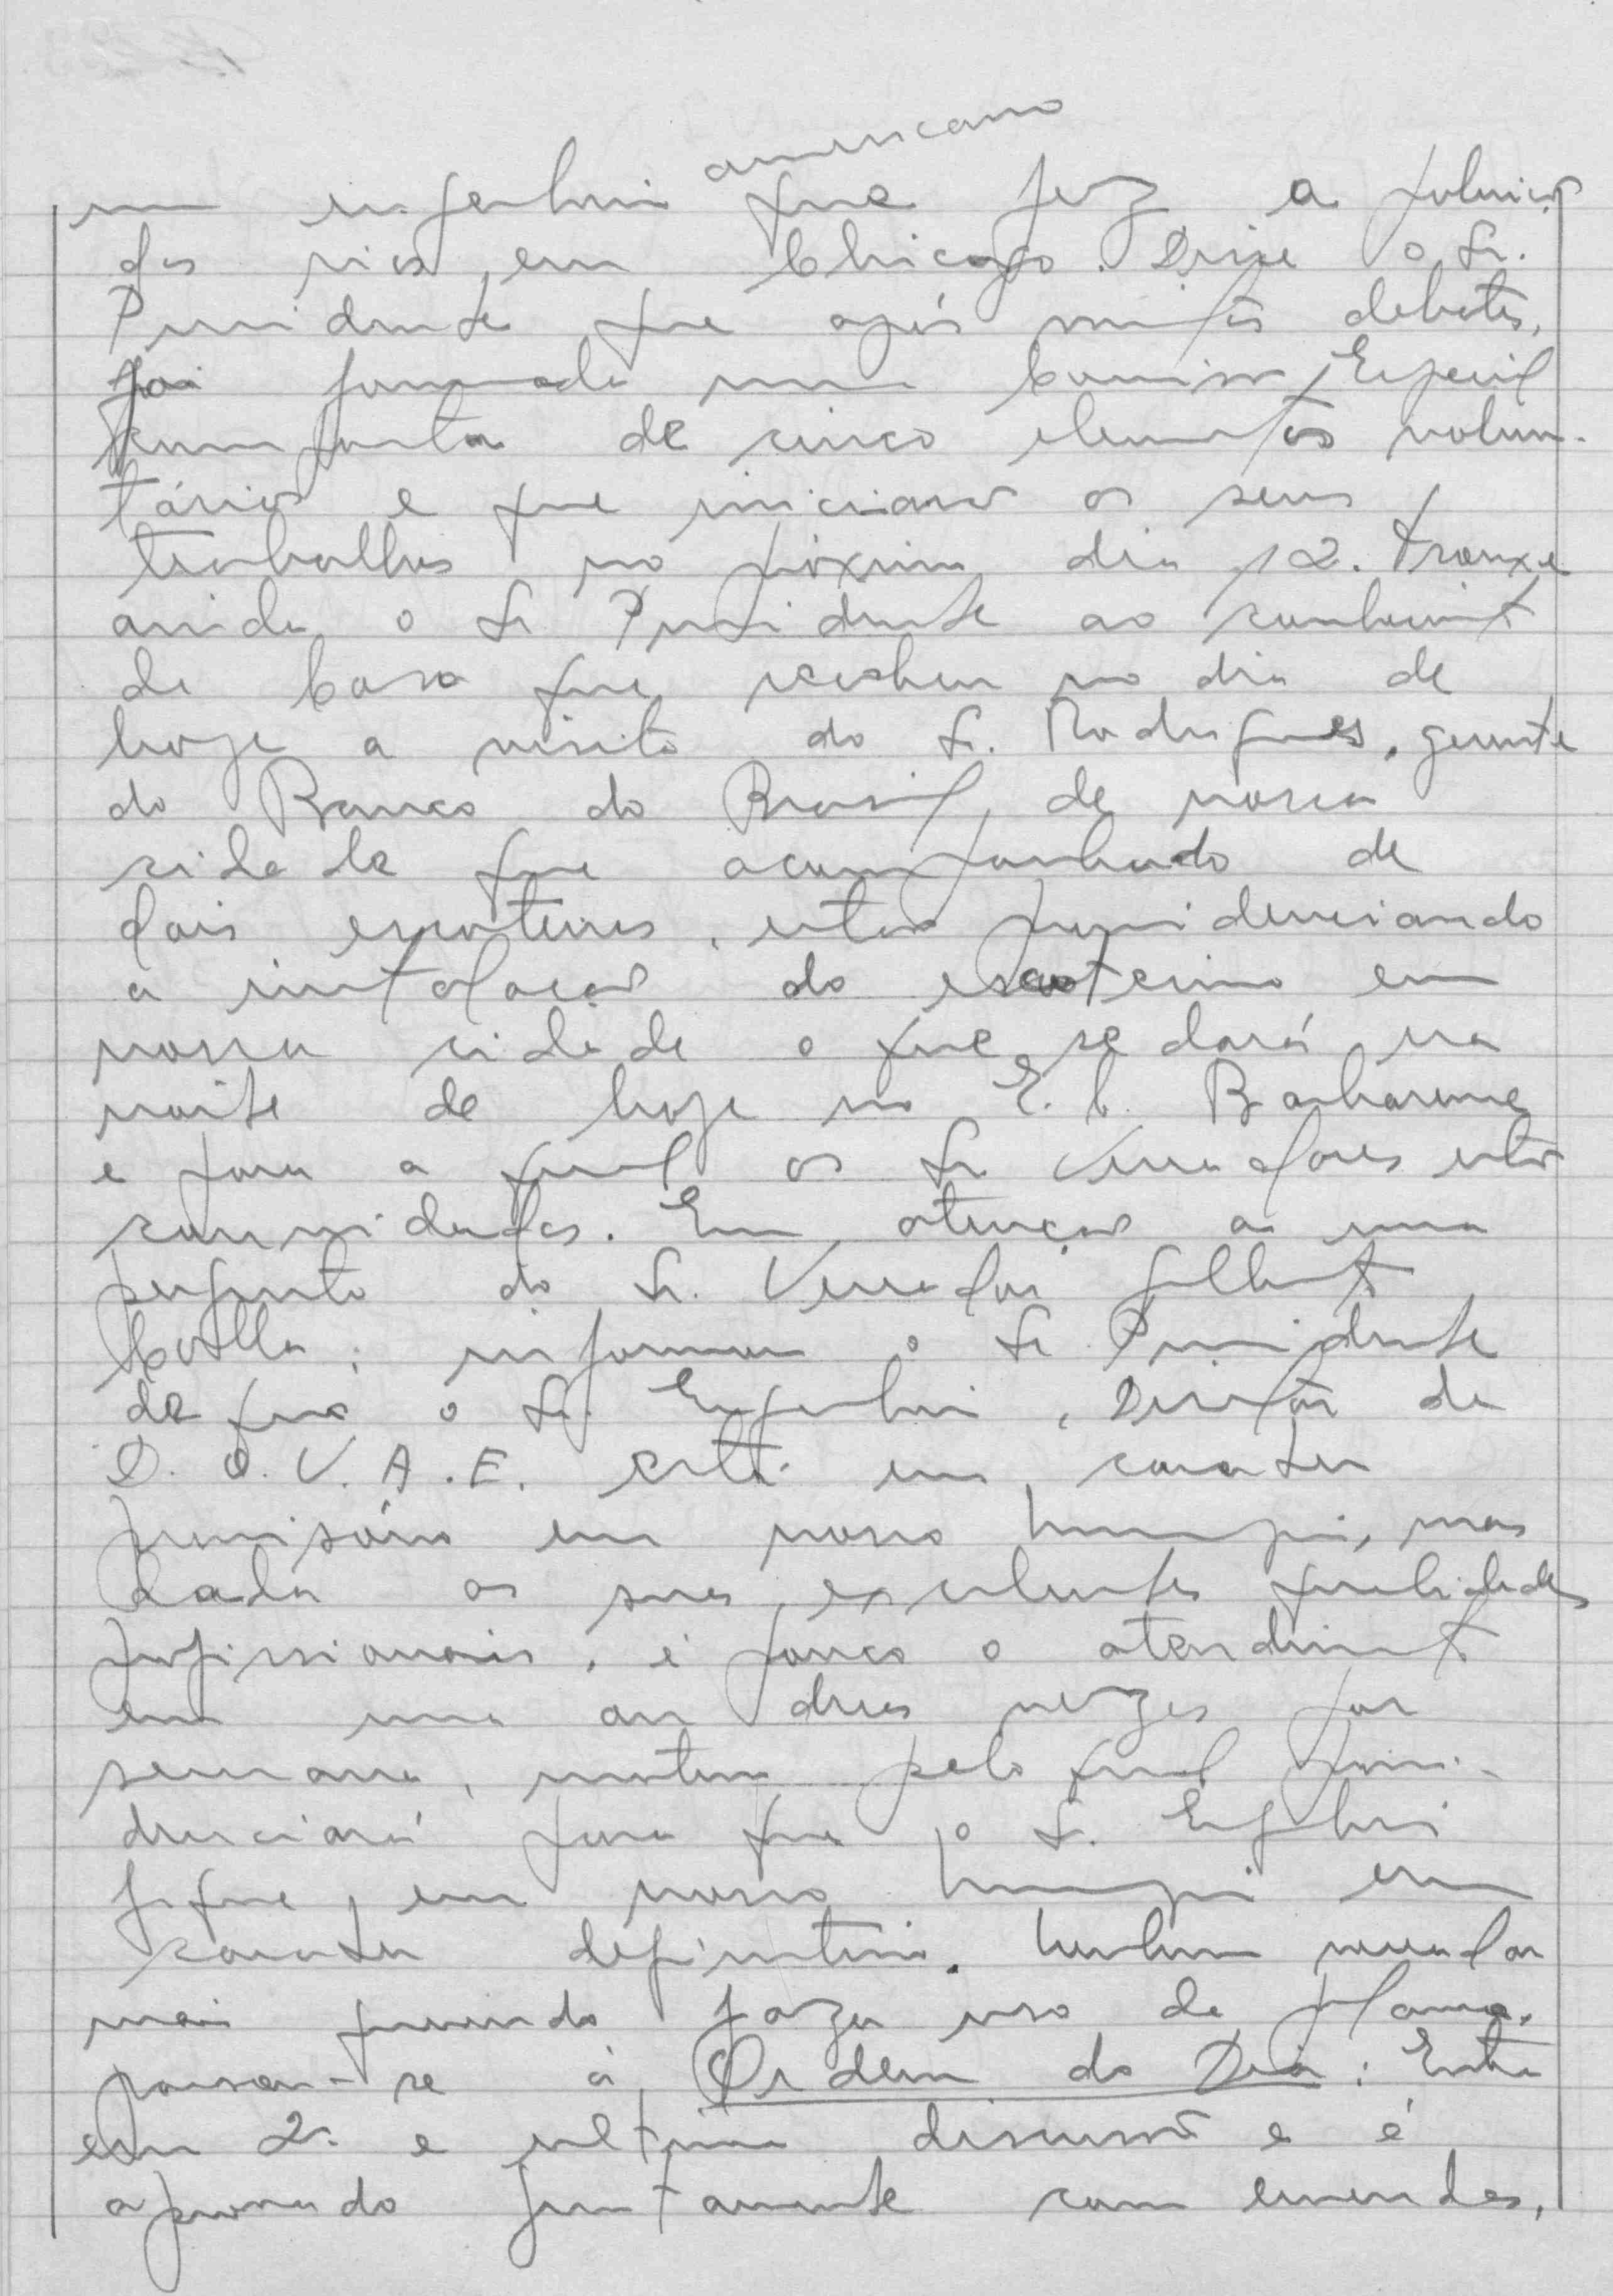 um engenheiro americano que fez a poluição
dos rios em Chicago. Disse o Sr.
Presidente que após muitos debates,
foi formada uma Comissão Especial
composta de cinco elementos volun-
tários e que iniciarão os seus
trabalhos no próximo dia 12. Trouxe
ainda o Sr Presidente ao conheciment
da Casa que recebeu no dia de
hoje a visita do Sr. Rodrigues, gerente
do Banco do Brasil, de nossa
cidade que acompanhado de
dois escoteiros, estão providenciando
a instalação do escoteirismo em
nossa cidade o que se dará na
noite de hoje no E. C. Barbarense
e para a qual os Sr Vereadores estão
convidados. Em atenção a uma
pergunta do Sr. Vereador Gilbert
informou o Sr Presidente
de que o Sr. Engenheiro, Diretor do
D. O. V. A. E. está em carater
provisório em nosso Município, mas
dada as suas excelentes qualidades
profissionais, é pouco o atendiment
em uma ou duas vezes por
semana, motivo pelo qual provi-
denciará para que o Sr. Engenheiro
fique em nosso Município em
carater definitivo. Nenhum vereador
mais querendo fazer uso da palavra,
passou-se à Ordem do Dia: Entra
em 2ª e ultima discussão e é
aprovado juntamente com emendas,